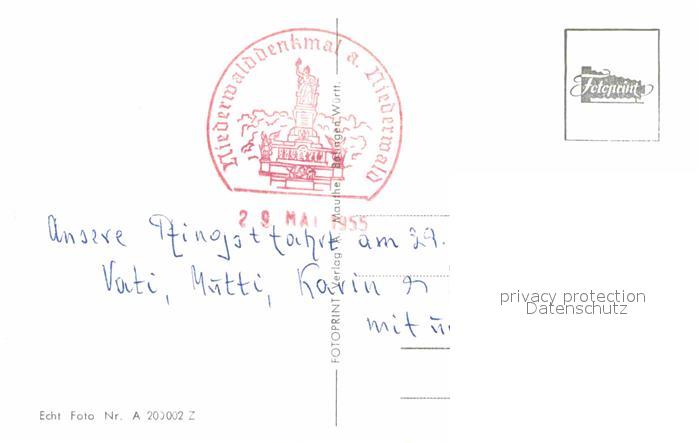 Niederwalddenkmal a. Niederwald
29 MAI 1955
Fotoprint
Ansere Pfingstfahrt am 29.
Vati, Mutti, Karin
mit
privacy protection
Datenschutz
FOTOPRINT Verlag A. Mauthe, Württ.
Echt Foto Nr. A 200002 Z